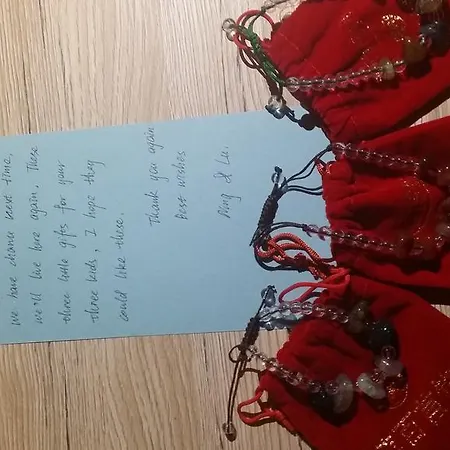 we have chance next time,
we'll live here again. These
three little gifts for your
three kids, I hope they
could like these.
Thank you again
Best wishes
Ping & Lu.